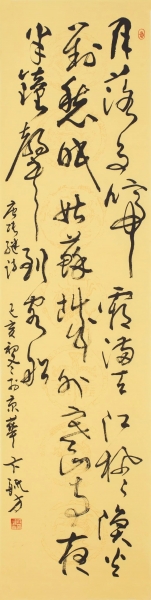 月落烏啼霜滿天江楓漁火
對愁眠姑蘇城外寒山寺夜
半鐘聲到客船
唐張繼詩 己亥初冬於京華 卞毓方